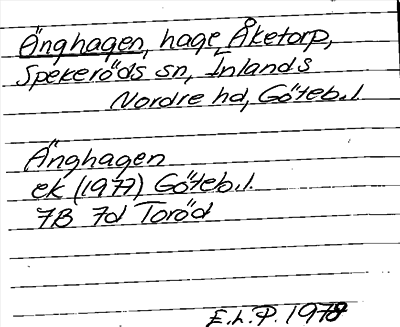 Änghagen, hage, Åketorp,
Spekeröds sn, Inlands
Nordre hd, Göteb.l.
Änghagen
ek (1977) Göteb.l.
7B 7d Toröd
E.L.P. 1978